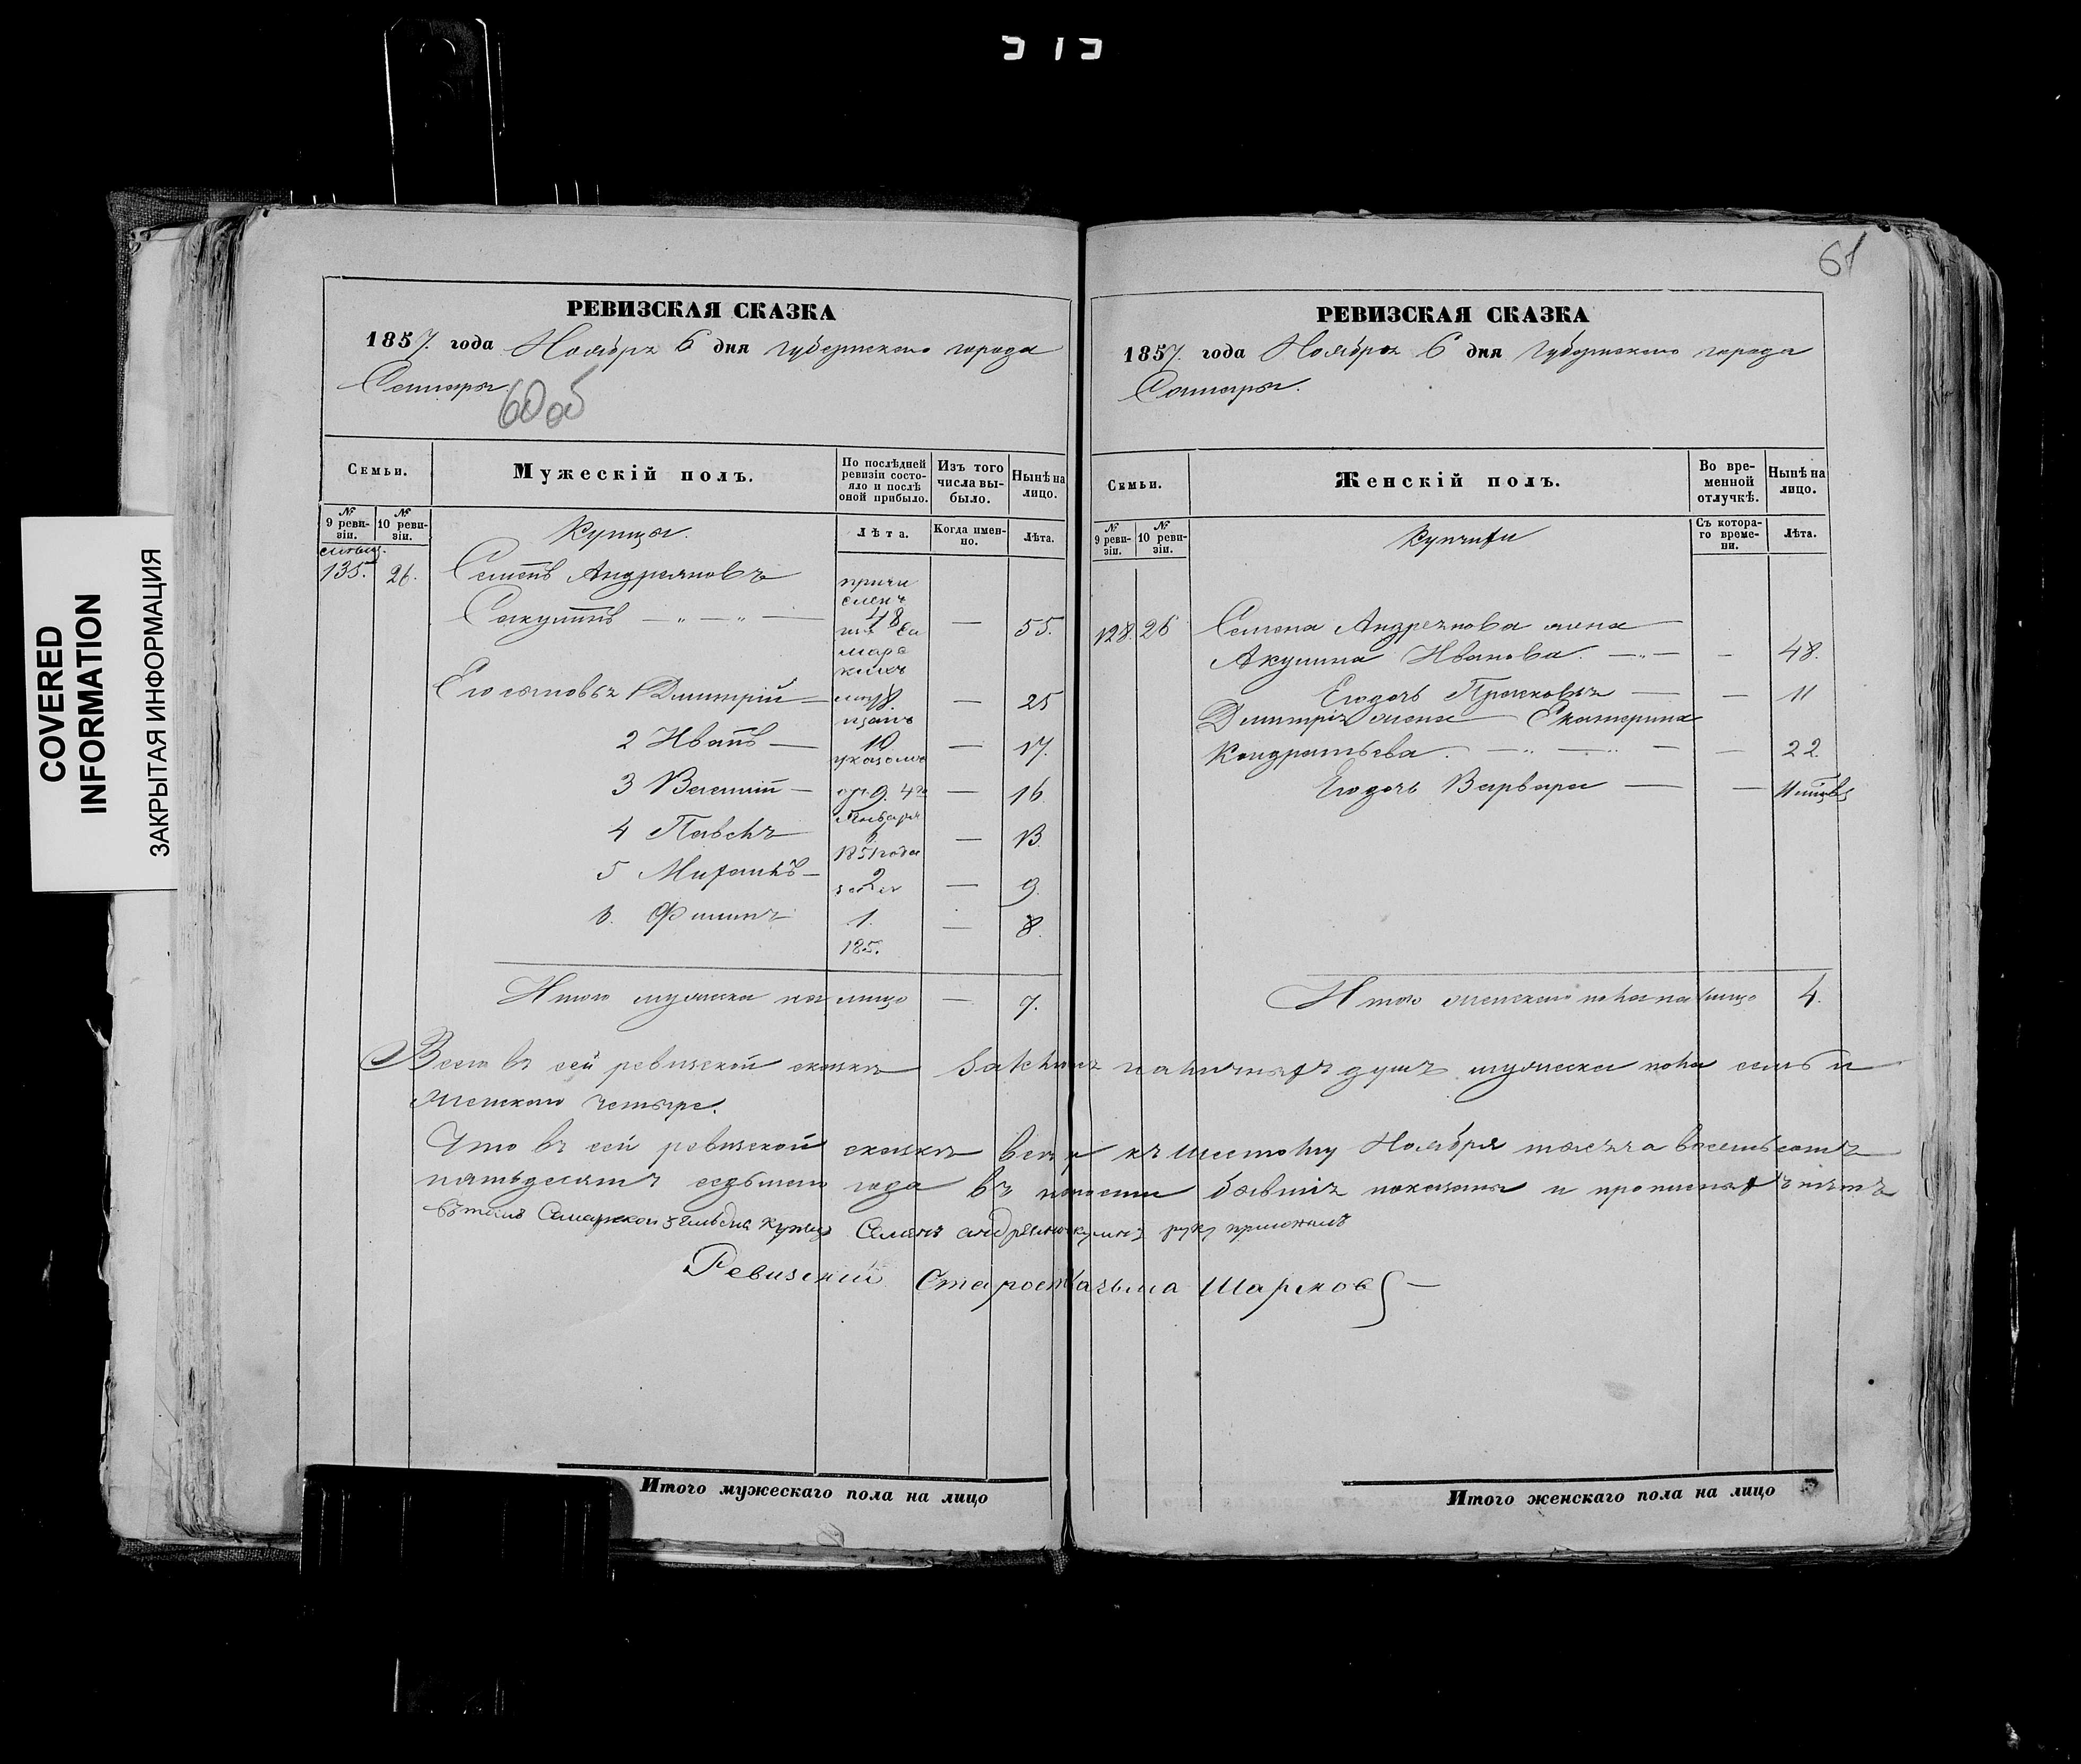 COVERED
INFORMATION
ЗАКРЫТАЯ ИНФОРМАЦИЯ
60 об
РЕВИЗСКАЯ СКАЗКА
1857. года Ноября 6 дня Губернскаго города
Самары.
Семьи.
Мужескій полъ.
По послѣдней ревизіи состояло и послѣ оной прибыло.
Изъ того числа выбыло.
Нынѣ на лицо.
№ 9 ревизіи.
№ 10 ревизіи.
Купцы.
Лѣта.
Когда именно.
Лѣта.
135. 26. Семенъ Андреяновъ
причи
сленъ
48 — 55.
изъ Са
марс
кихъ
Его сыновья 1 Дмитрій — 18. — 25
мѣ
щанъ
2 Иванъ — 10 — 17.
указомъ
3 Василій — 9. — 16
4 Павелъ — 6 — 13.
Января
1851 года
5 — 2 — 9.
6. Филипъ 1. — 8.
185.
Итого мужеска на лицо — 7.
61
РЕВИЗСКАЯ СКАЗКА
1857. года Ноября 6 дня Губернскаго города
Самары.
Семьи.
Женскій полъ.
Во временной отлучкѣ.
Нынѣ на лицо.
№ 9 ревизіи.
№ 10 ревизіи.
Купчихи
Съ котораго времени.
Лѣта.
128. 26 Семена Андреянова жена
Акулина Иванова. — — 48.
Его дочь Прасковья — — 11
Дмитрія жена Екатерина
Кондратьева. — — 22.
Его дочь Варвара — —
Итого женскаго пола на лицо 4.
Всего въ сей ревизской сказкѣ наличныхъ душъ мужеска пола семь и
женскаго четыре.
Что въ сей ревизской сказкѣ всѣ къ шестому Ноября тысяча восемьсотъ
пятьдесятъ седьмаго года въ наличности бывшіе показаны и прописныхъ нѣтъ
въ томъ Самарской купецъ Семенъ руку приложилъ
Ревизский Староста Шарков
Итого мужескаго пола на лицо
Итого женскаго пола на лицо